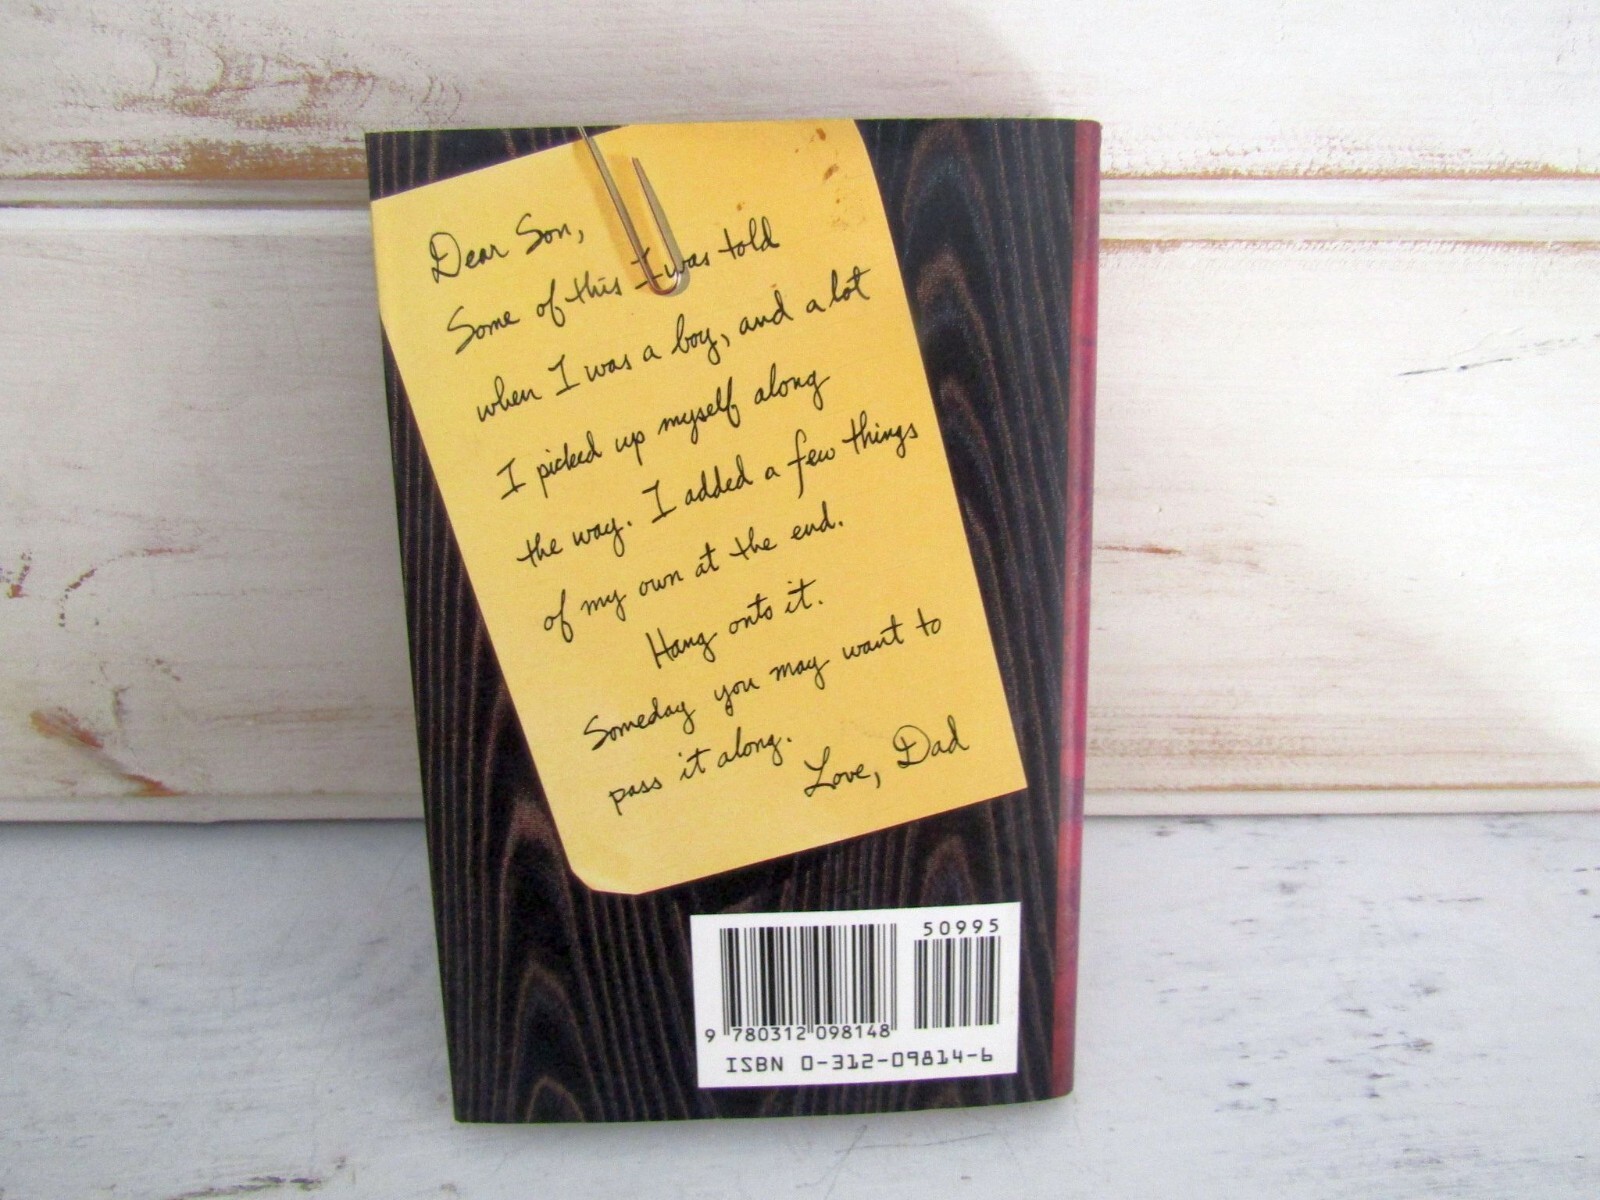 Dear Son,
Some of this I was told
when I was a boy, and a lot
I picked up myself along
the way. I added a few things
of my own at the end.
Hang onto it.
Someday you may want to
pass it along.
Love, Dad
50995
9 780312 098148
ISBN 0-312-09814-6